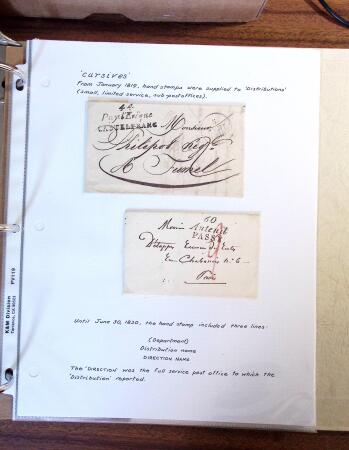 'CURSIVES'
From January 1819, hand stamps were supplied to 'Distributions'
(small, limited service, sub-post offices).
44.
Puyl'Evêque
CASTELFRANC
Monsieur
A Fumel
60
PASSY
Paris
Until June 30, 1830, the hand stamp included three lines:
(Department)
Distribution name
DIRECTION NAME
The 'DIRECTION' was the full service post office to which the
'Distribution' reported.
K&M Division
FV119